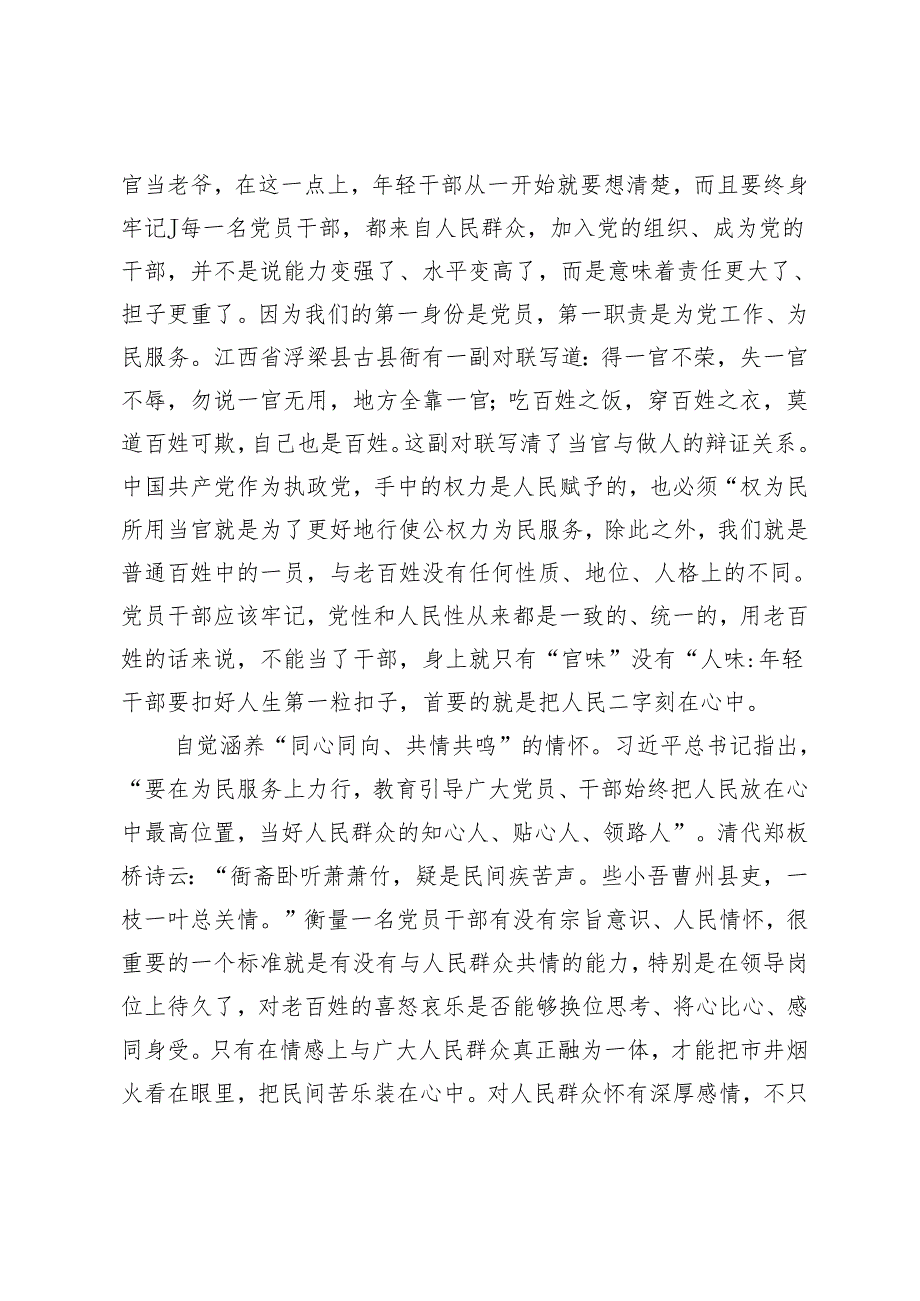 官当老爷，在这一点上，年轻干部从一开始就要想清楚，而且要终身
牢记J每一名党员干部，都来自人民群众，加入党的组织、成为党的
干部，并不是说能力变强了、水平变高了，而是意味着责任更大了、
担子更重了。因为我们的第一身份是党员，第一职责是为党工作、为
民服务。江西省浮梁县古县衙有一副对联写道：得一官不荣，失一官
不辱，勿说一官无用，地方全靠一官；吃百姓之饭，穿百姓之衣，莫
道百姓可欺，自己也是百姓。这副对联写清了当官与做人的辩证关系。
中国共产党作为执政党，手中的权力是人民赋予的，也必须“权为民
所用当官就是为了更好地行使公权力为民服务，除此之外，我们就是
普通百姓中的一员，与老百姓没有任何性质、地位、人格上的不同。
党员干部应该牢记，党性和人民性从来都是一致的、统一的，用老百
姓的话来说，不能当了干部，身上就只有“官味”没有“人味：年轻
干部要扣好人生第一粒扣子，首要的就是把人民二字刻在心中。
自觉涵养“同心同向、共情共鸣”的情怀。习近平总书记指出，
“要在为民服务上力行，教育引导广大党员、干部始终把人民放在心
中最高位置，当好人民群众的知心人、贴心人、领路人”。清代郑板
桥诗云：“衙斋卧听萧萧竹，疑是民间疾苦声。些小吾曹州县吏，一
枝一叶总关情。”衡量一名党员干部有没有宗旨意识、人民情怀，很
重要的一个标准就是有没有与人民群众共情的能力，特别是在领导岗
位上待久了，对老百姓的喜怒哀乐是否能够换位思考、将心比心、感
同身受。只有在情感上与广大人民群众真正融为一体，才能把市井烟
火看在眼里，把民间苦乐装在心中。对人民群众怀有深厚感情，不只